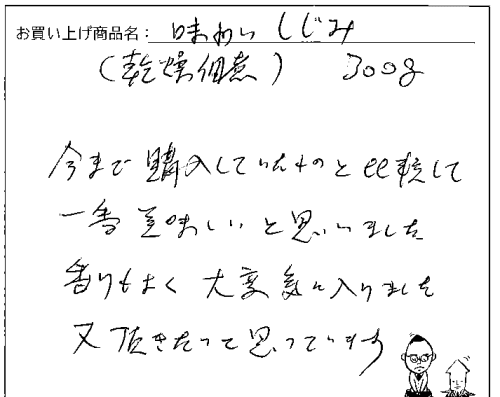 お買い上げ商品名： 味わい しじみ
（乾燥佃煮） 300g
今まで 購入していたものと比較して
一番 美味しいと思いました
香りもよく 大変気に入りました
又 頂きたいって思っています